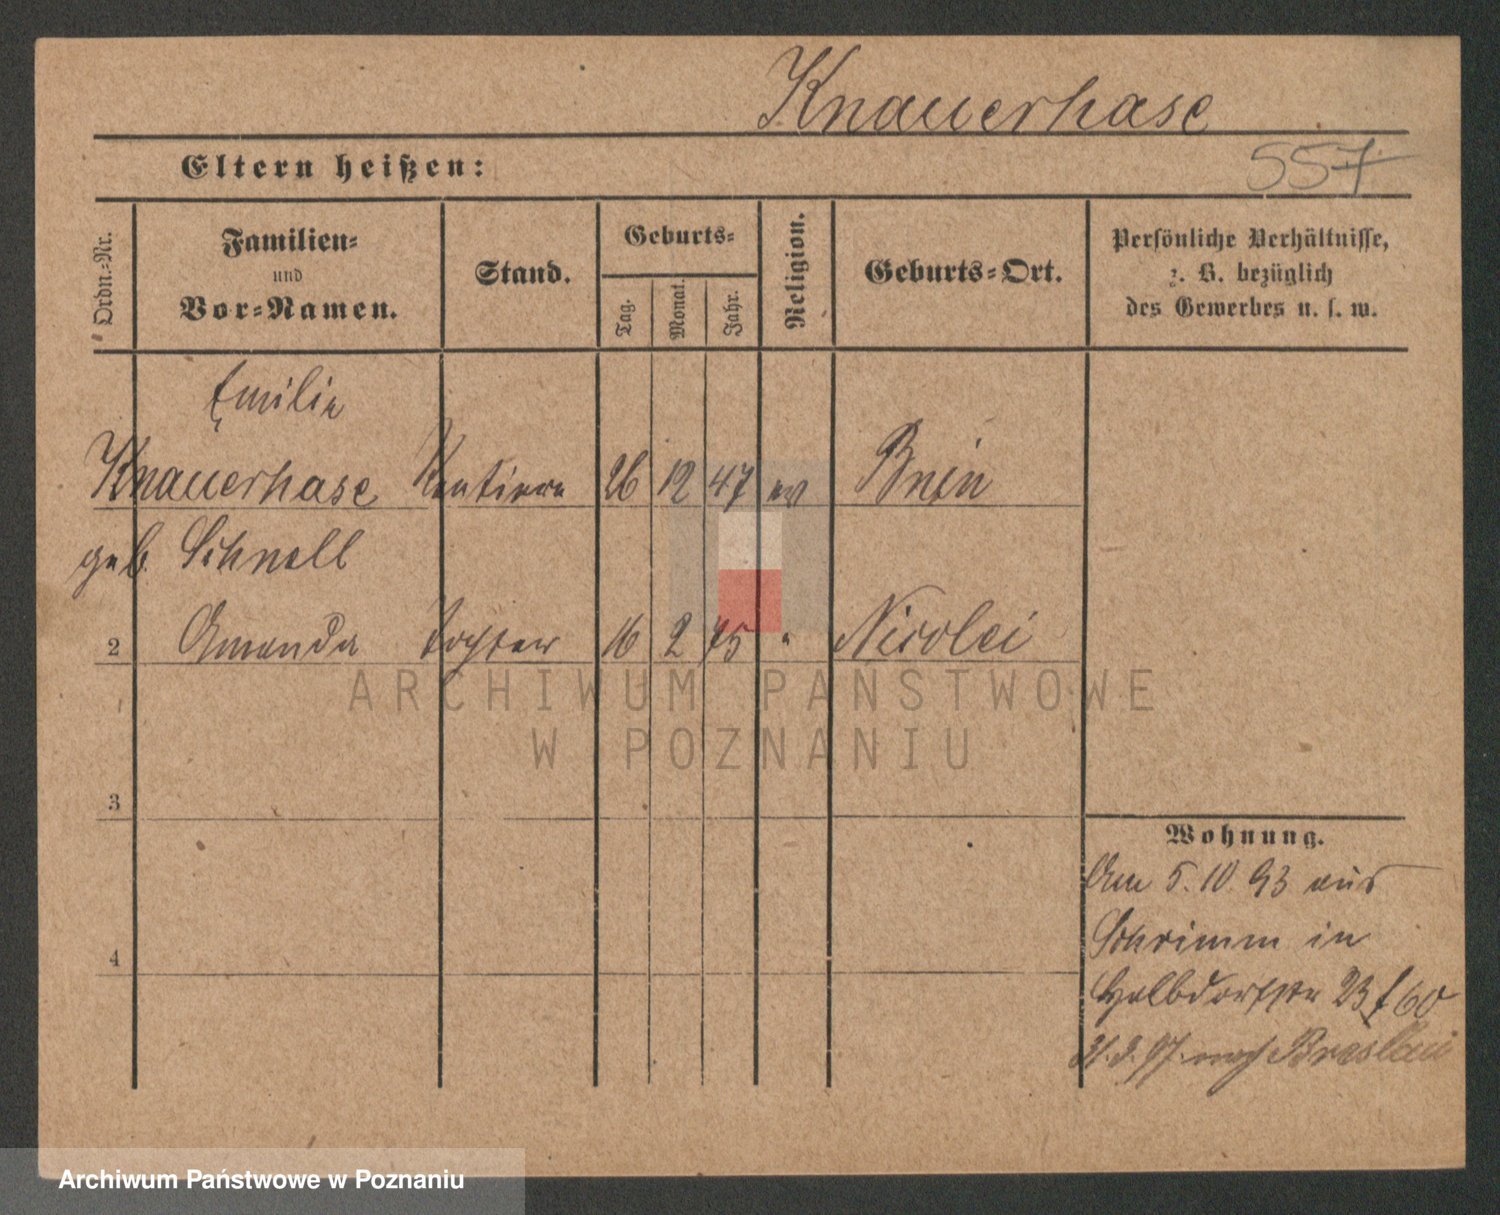 Knauerhase
Eltern heißen:
557
Ordn.-Nr.
Familien-
und
Vor-Namen.
Stand.
Geburts-
Tag.
Monat.
Jahr.
Religion.
Geburts-Ort.
Persönliche Verhältnisse,
z. B. bezüglich
des Gewerbes u. s. w.
Emilie
Knauerhase Rentiere 26 12 47 ev Bnin
geb. Schnell
2 Amanda Tochter 16 2 75 " Nicolei
ARCHIWUM PAŃSTWOWE
W POZNANIU
3
4
Wohnung.
Am 5.10.93 aus
Schrimm in
Halbdorfstr 23 f 60
31.3.97. nach Breslau
Archiwum Państwowe w Poznaniu